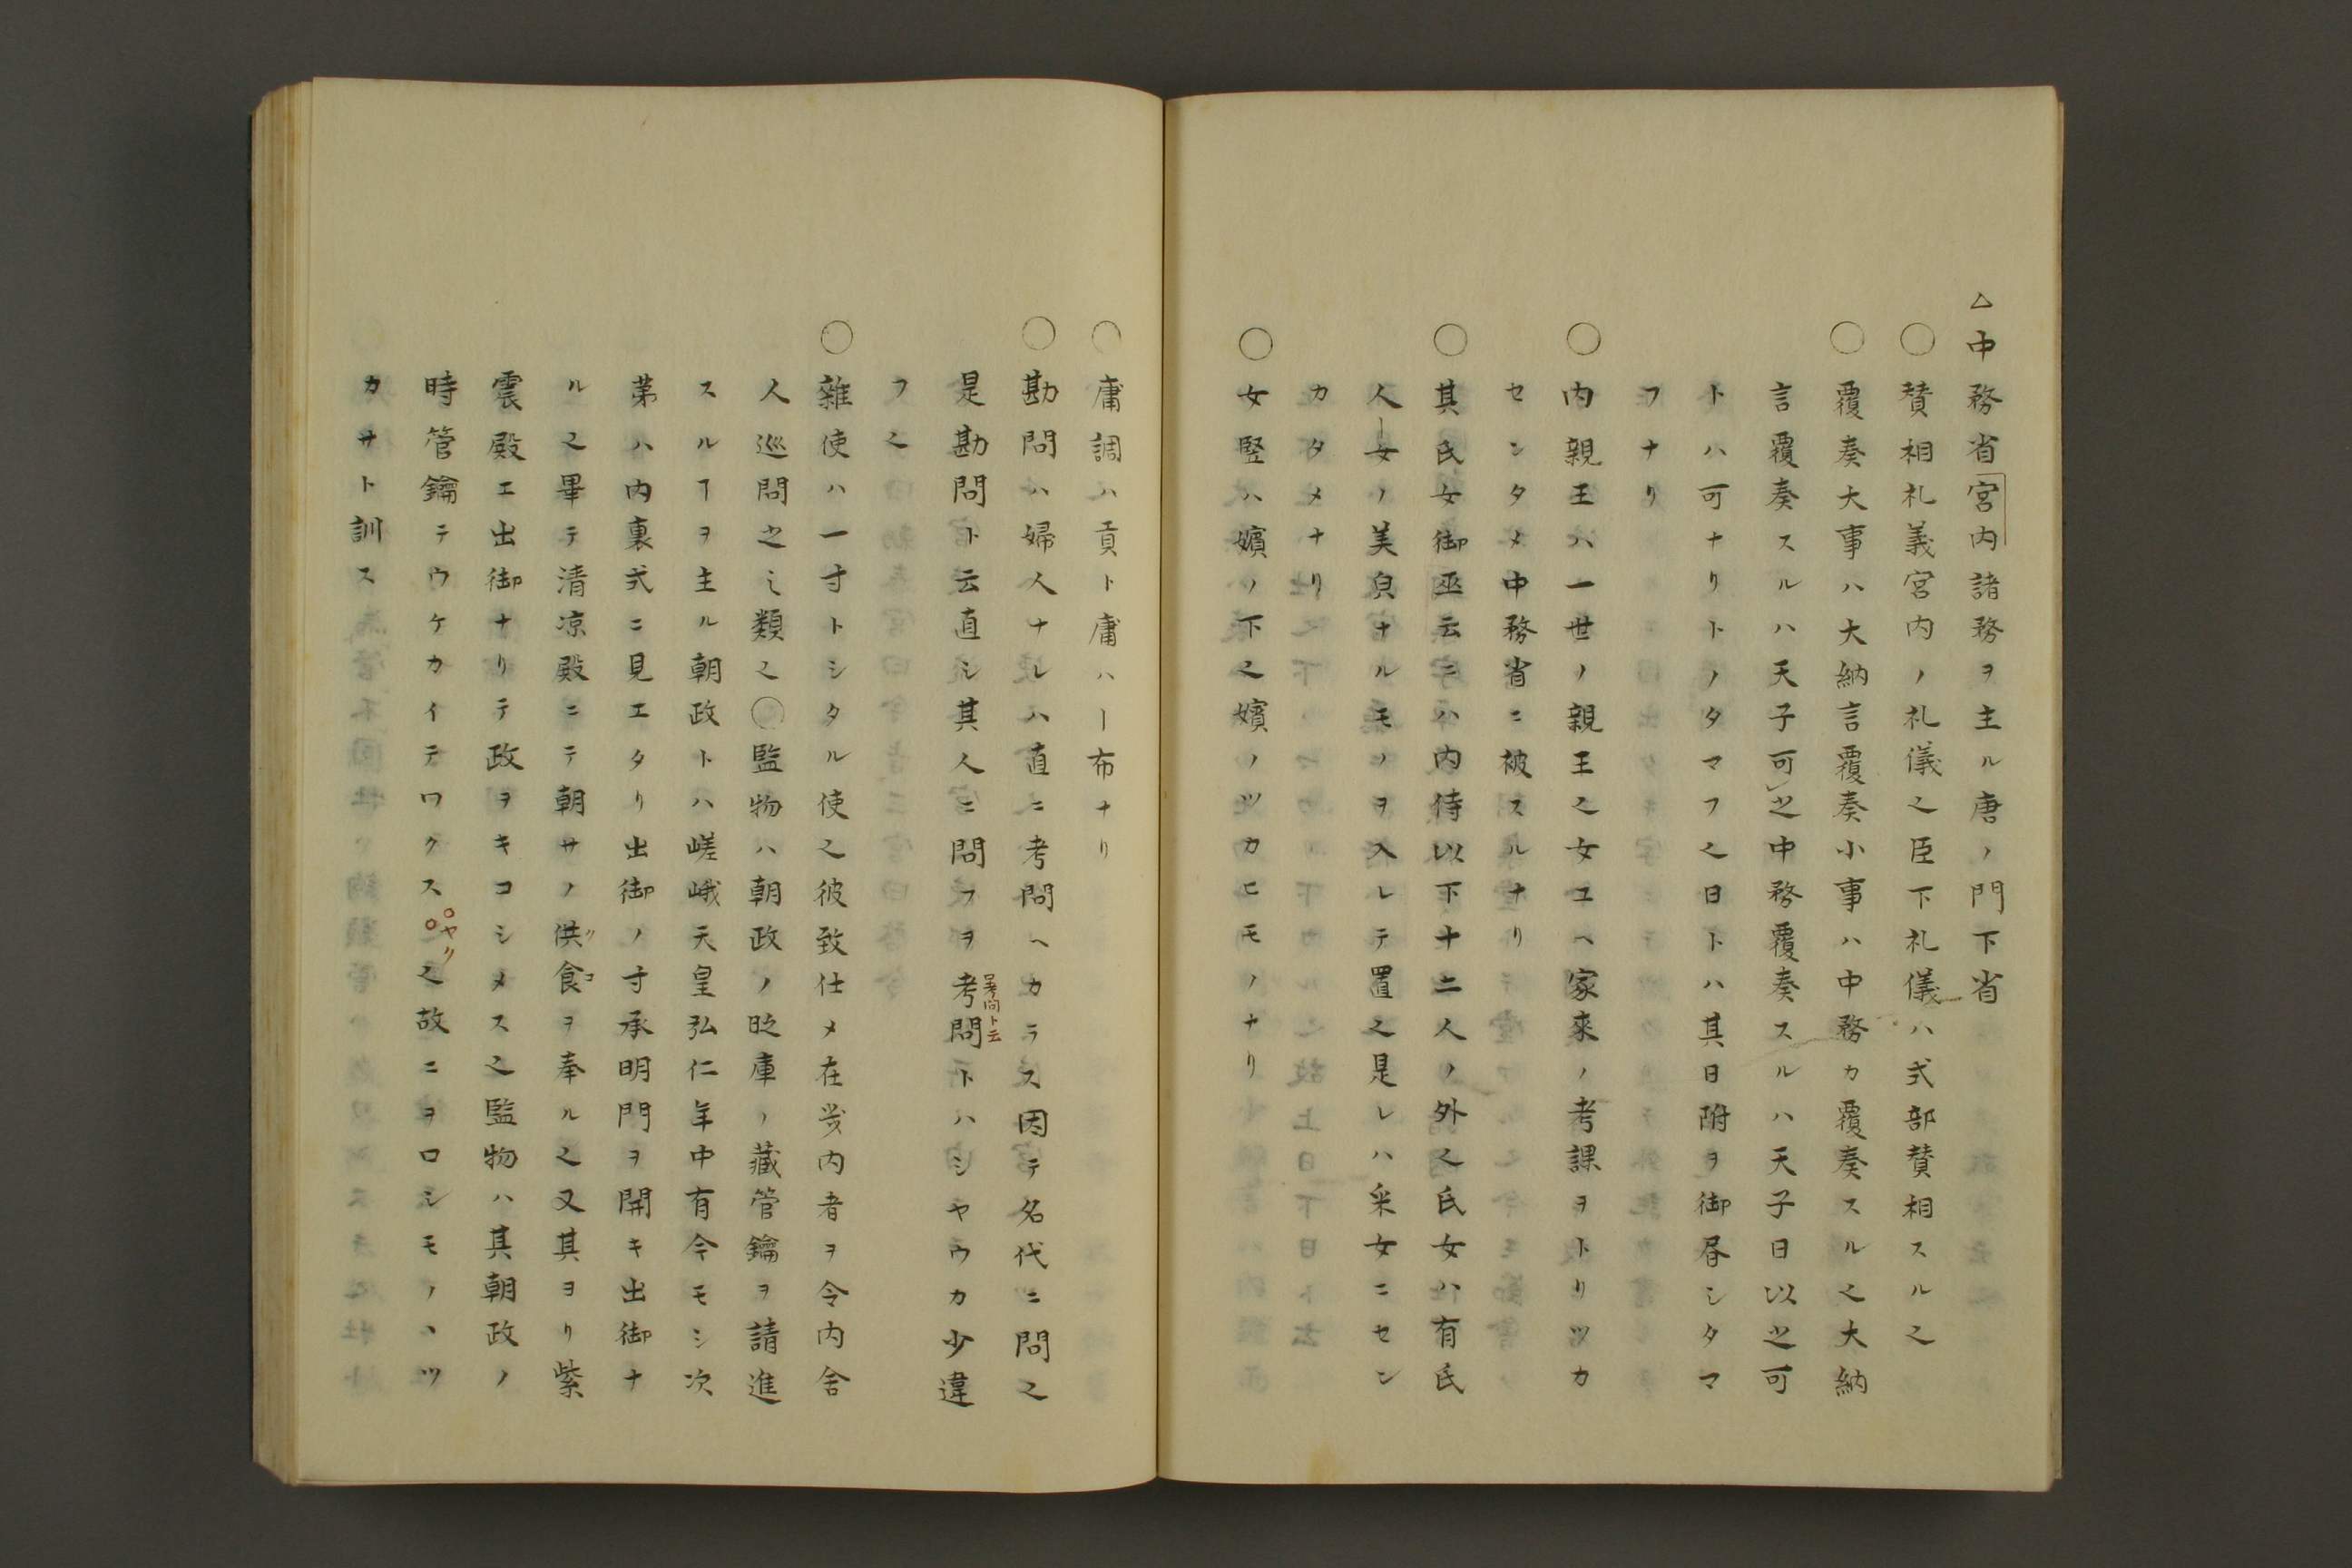 △中務省宮内諸務ヲ主ル唐ノ門下省
○賛相礼義宮内ノ礼儀之臣下礼儀ハ式部賛相スル之
○覆奏大事ハ大納言覆奏小事ハ中務カ覆奏スル之大納
言覆奏スルハ天子可之中務覆奏スルハ天子日以之可
トハ可ナリトノタマフ之日トハ其日附ヲ御昼シタマ
フナリ
○内親王ハ一世ノ親王之女ユヘ家来ノ考課ヲトリツカ
センタメ中務省ニ被スルナリ
○其氏女御巫云ニハ内侍以下十二人ノ外之氏女ハ有氏
人ー女ノ美皃ナルモノヲ入レテ置之是レハ采女ニセン
カタメナリ
○女竪ハ嬪ノ下之嬪ノツカヒモノナリ
○庸調ハ貢ト庸ハー布ナリ
○勘問ハ婦人ナレハ直ニ考問ヘカラス因テ名代ニ問之
是勘問ト云直シ其人ニ問フヲ考問トハシヤウカ少違
呈考問ト云
フ之
○雜使ハ一寸トシタル使之彼致仕メ在㪯内者ヲ令内舎
人巡問之ミ類之○監物ハ朝政ノ昤庫ノ藏管鑰ヲ請進
スルヿヲ主ル朝政トハ嵯峨天皇弘仁年中有今モシ次
第ハ内裏式ニ見エタリ出御ノ寸承明門ヲ開キ出御ナ
ル之畢テ清凉殿ニテ朝サノ洪食ヲ奉ル之又其ヨリ紫
震殿エ出御ナリテ政ヲキコシメス之監物ハ其朝政ノ
時管鑰テウケカイテワクス之故ニヲロシモノヽツ
カサト訓ス